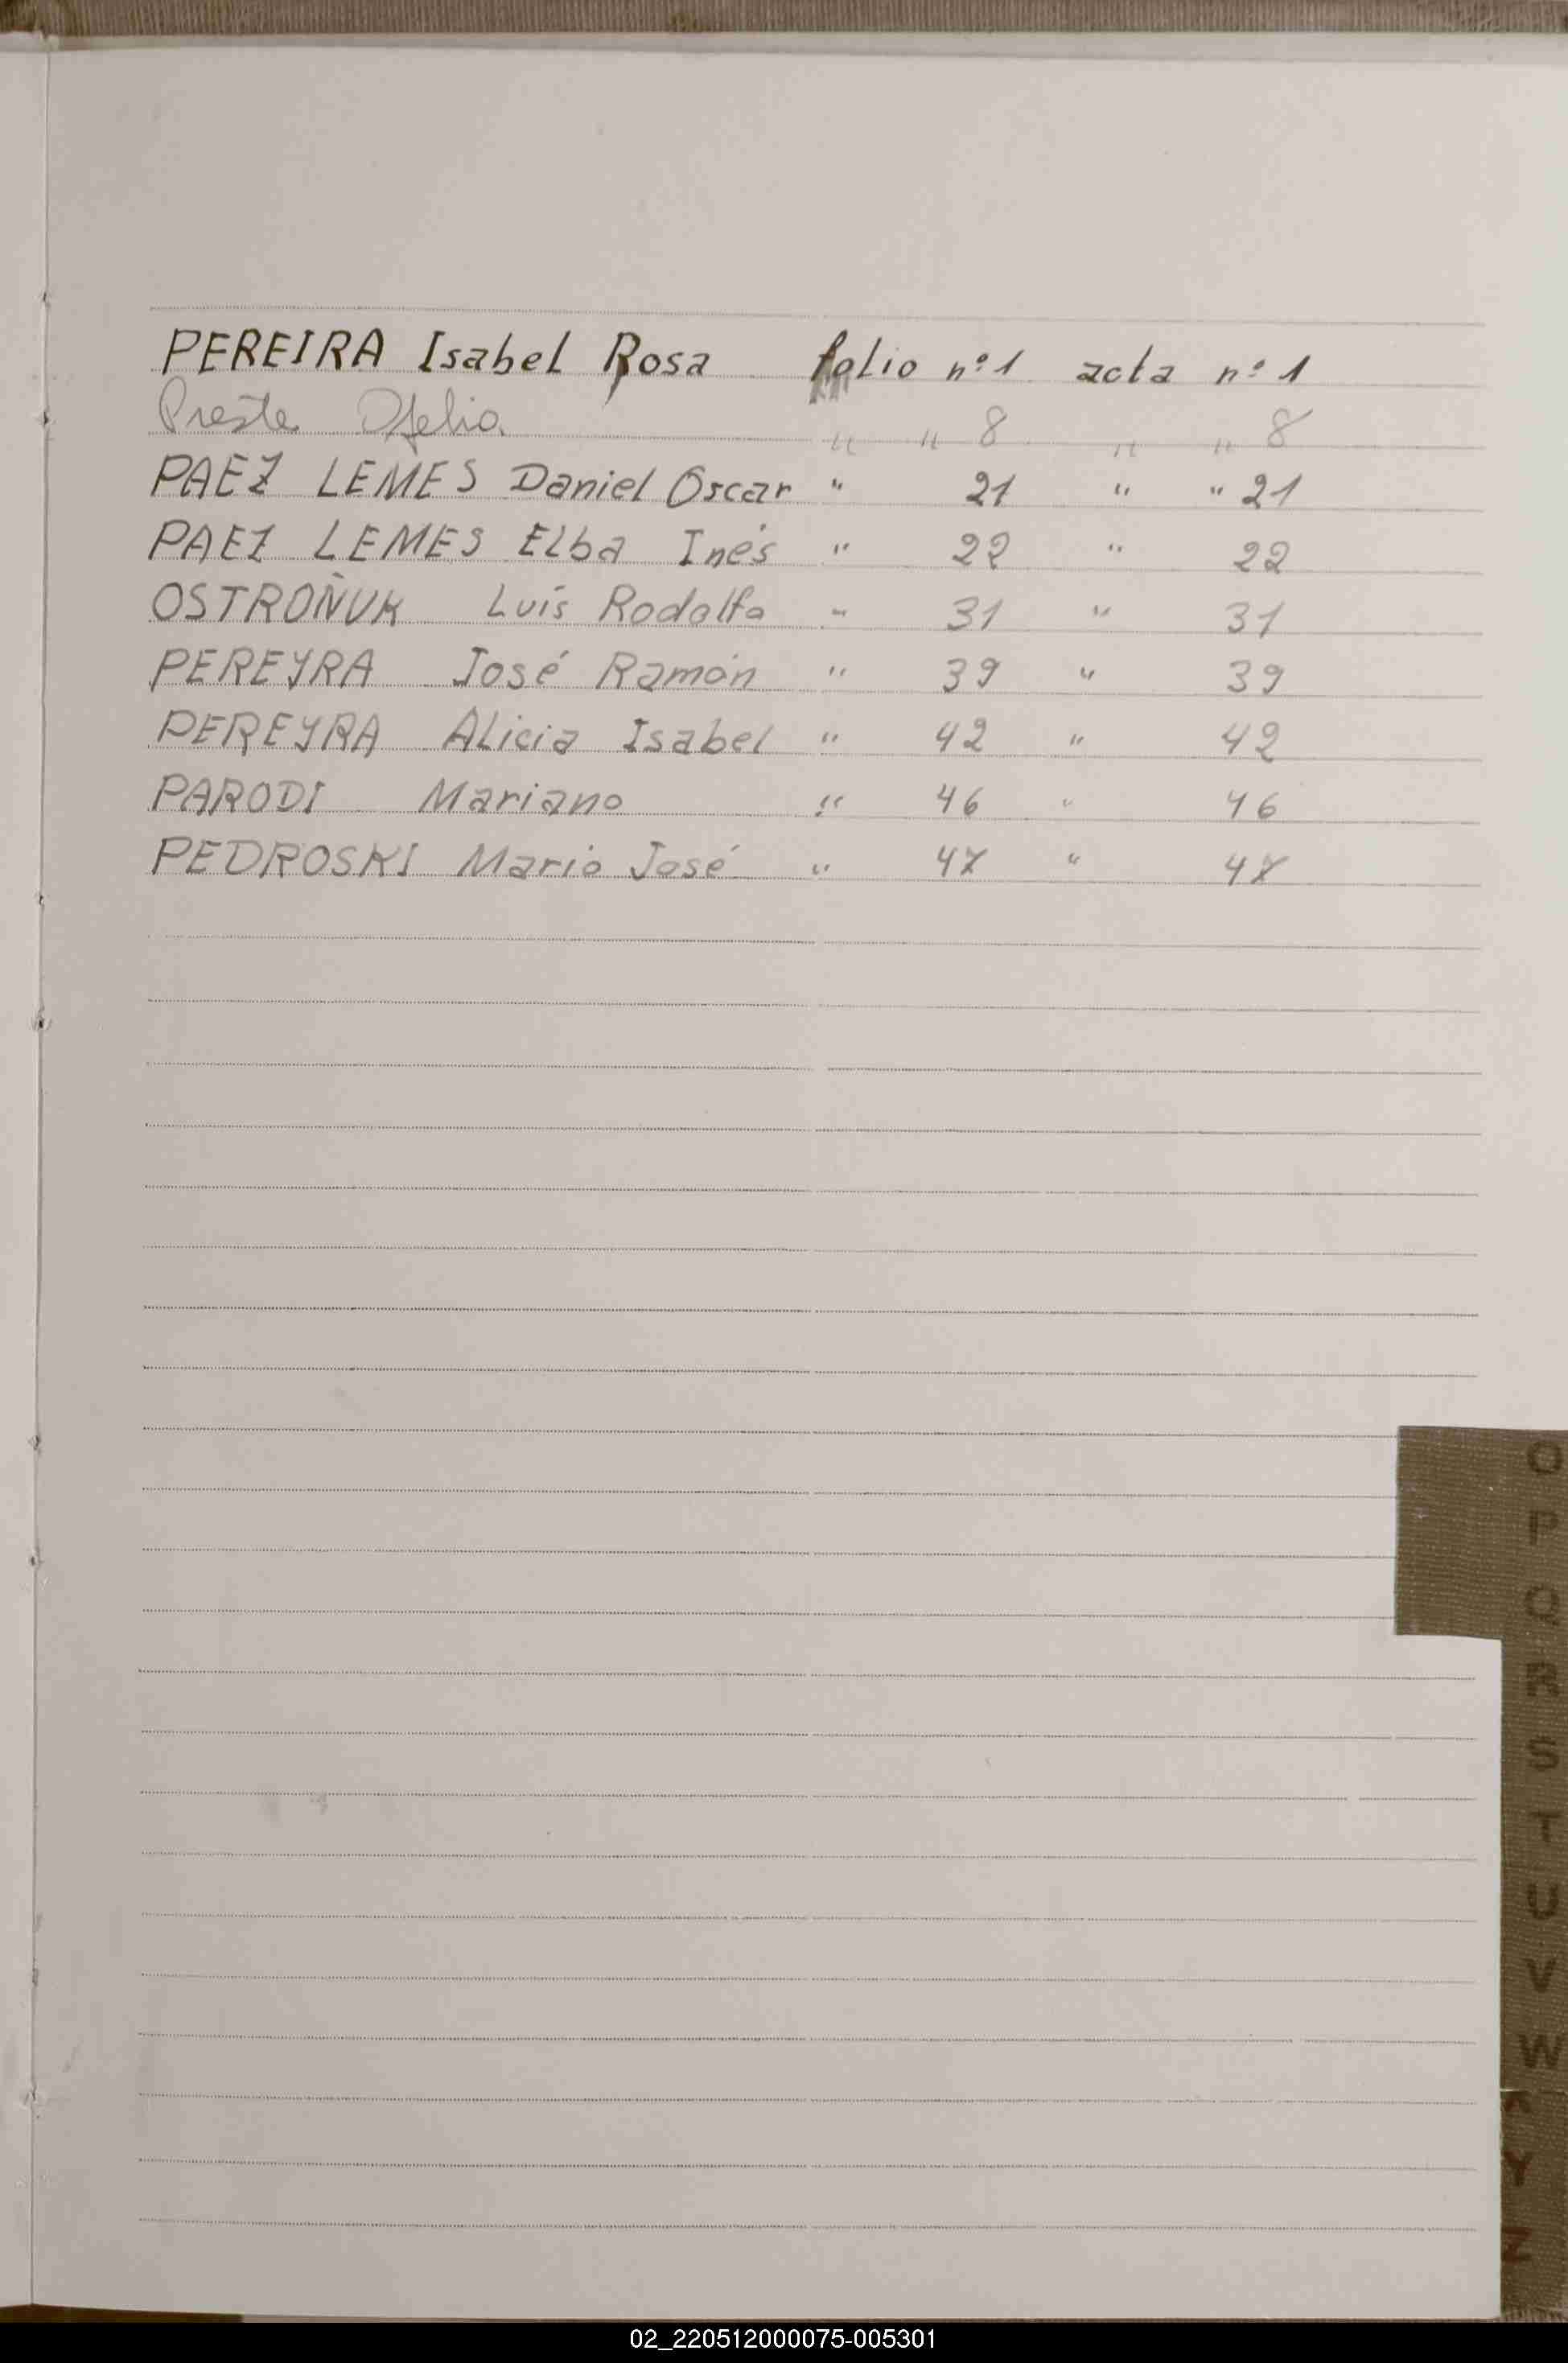 PEREIRA Isabel Rosa folio nº 1 acta nº 1
Preste Ofelia " " 8 " " 8
PAEZ LEMES Daniel Oscar " 21 " " 21
PAEZ LEMES Elba Inés " 22 " 22
OSTROÑUK Luis Rodolfo " 31 " 31
PEREYRA José Ramón " 39 " 39
PEREYRA Alicia Isabel " 42 " 42
PARODI Mariano " 46 " 46
PEDROSKI Mario José " 47 " 47
O
P
Q
R
S
T
U
V
W
X
Y
Z
02_220512000075-005301